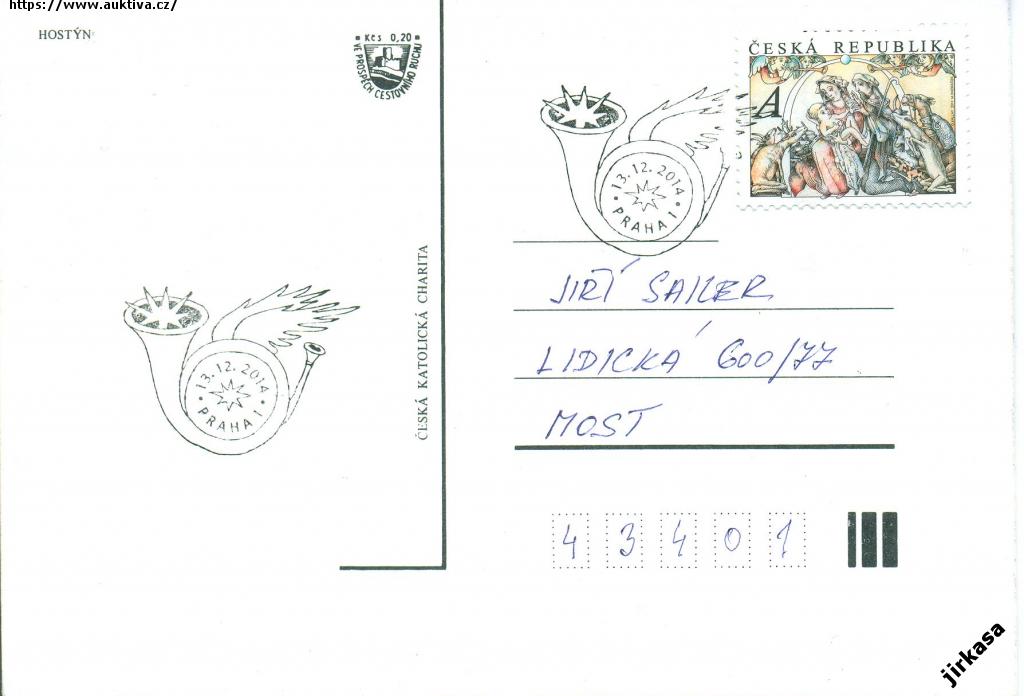 https://www.auktiva.cz/
HOSTÝN
Kčs 0,20
VE PROSPĚCH CESTOVNÍHO RUCHU
ČESKÁ REPUBLIKA
A
13.12.2014
PRAHA 1
JIŘÍ SAILER
LIDICKÁ 600/77
MOST
43401
ČESKÁ KATOLICKÁ CHARITA
13.12.2014
PRAHA 1
jirkasa